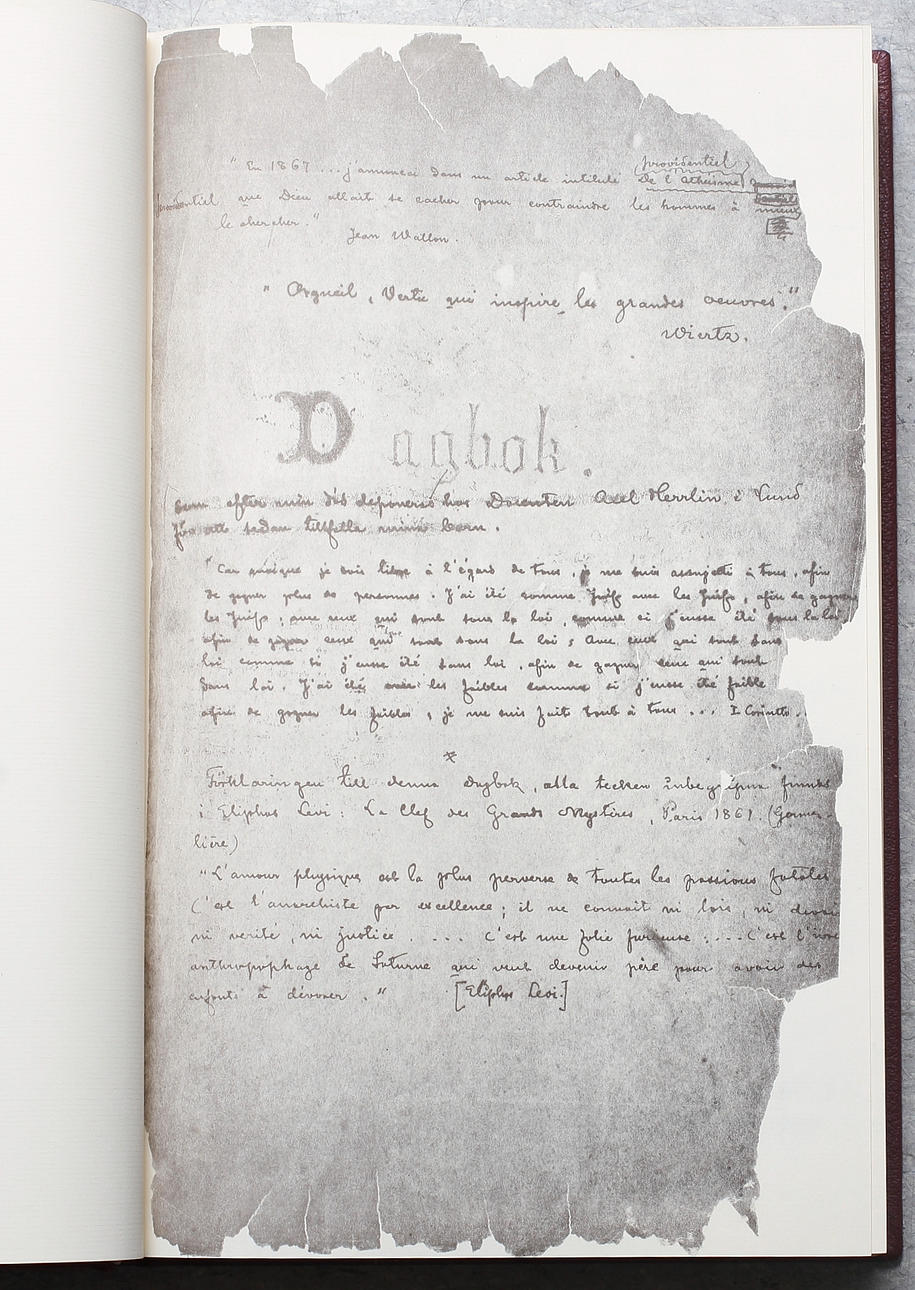 providentiel
"En 1867 ... j'annonçai dans un article intitulé De l'Athéisme
que Dieu allait se cacher pour contraindre les hommes à mieux
le chercher."
Jean Wallon.
"Orgueil, Vertu qui inspire les grandes oeuvres."
Wiertz.
Dagbok.
som efter min död deponeras hos Docenten Axel Herrlin i Lund
för att sedan tillfalla mina barn.
"Car quoique je sois libre à l'égard de tous, je me suis assujetti à tous, afin
de gagner plus de personnes. J'ai été comme Juifs avec les Juifs, afin de gagner
les Juifs; avec ceux qui sont sous la loi, comme si j'eusse été sous la loi
afin de gagner ceux qui sont sous la loi; Avec ceux qui sont sans
loi comme si j'eusse été sans loi, afin de gagner ceux qui sont
sans loi. J'ai été avec les faibles comme si j'eusse été faible
afin de gagner les faibles, je me suis fait tout à tous ... I Corinth.
Förklaringen till denna Dagbok, alla tecken inbegripna finnas
i Eliphas Levi: La Clef des Grands Mystères, Paris 1861. (Germer-
lière)
"L'amour physique est la plus perverse de toutes les passions fatales
C'est l'anarchiste par excellence; il ne connait ni lois, ni devoir
ni verité, ni justice. ... C'est une folie furieuse; ... C'est l'
anthropophage de Saturne qui veut devenir père pour avoir des
enfants à dévorer."
[Eliphas Levi.]